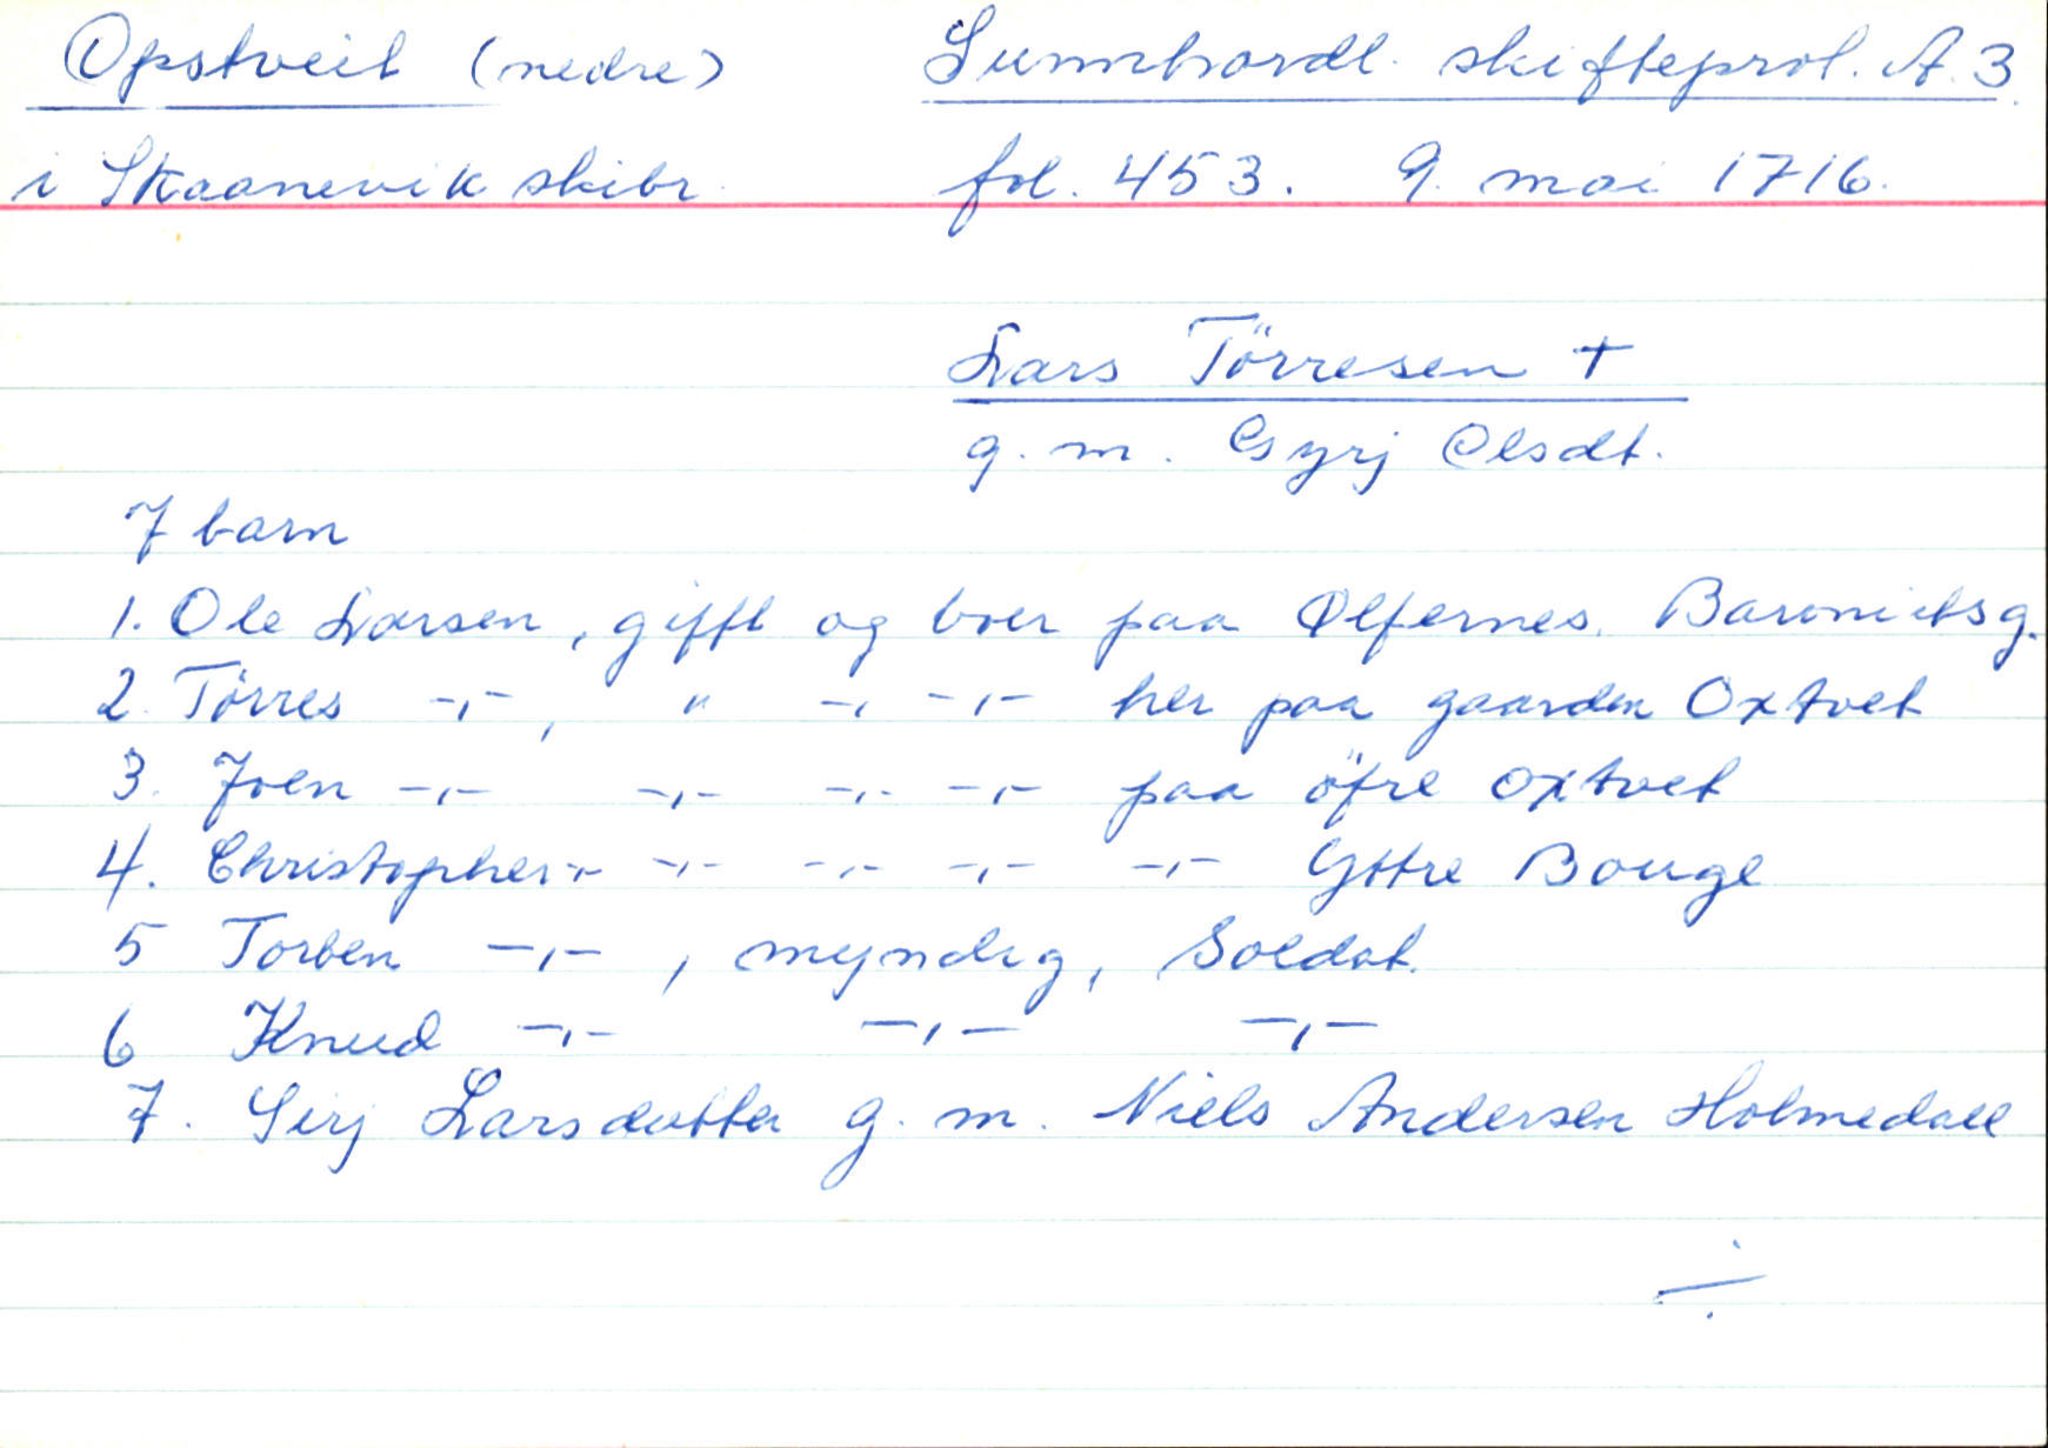 Opstveit (nedre) Sunnhordl. skifteprol. A. 3.
i Skaanevik skibr. fol. 453. 9. mai 1716.
Lars Törresen +
g. m. Gyrj Olsdt.
7 barn
1. Ole Larsen, gifft og boer paa Ølfernes. Baronietsg.
2. Törres -,-, " -, -,- her paa gaarden Oxtvet
3. Joen -,- -,- -,- -,- paa öfre Oxtvet
4. Christopher -,- -,- -,- -,- -,- Yttre Bouge
5 Torben -,- , myndig, Soldat.
6 Knud -,- -,- -,-
7. Sirj Larsdotter g. m. Niels Andersen Holmedall
÷